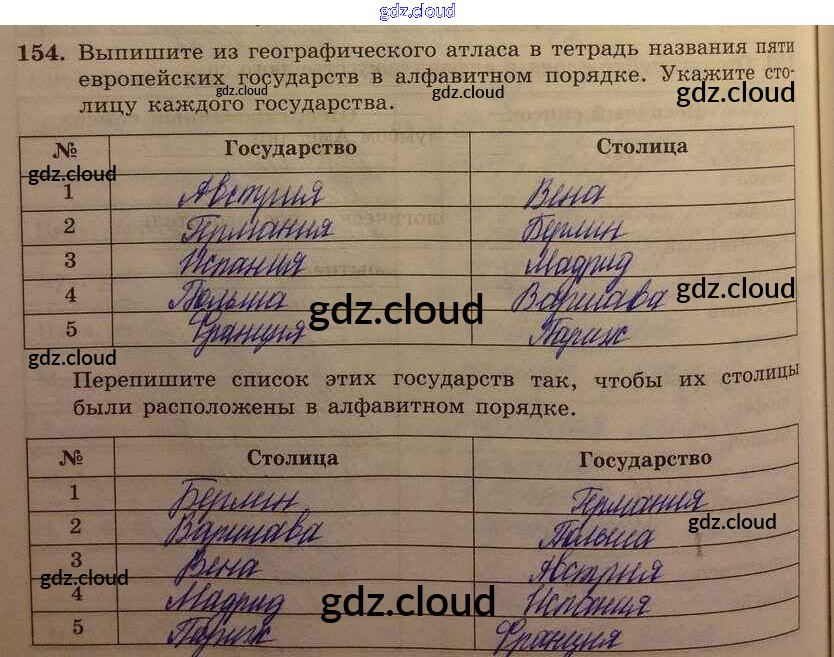 gdz.cloud
154. Выпишите из географического атласа в тетрадь названия пяти
европейских государств в алфавитном порядке. Укажите сто-
gdz.cloud gdz.cloud gdz.cloud
лицу каждого государства.
№ Государство Столица
gdz.cloud
1 Австрия Вена
2 Германия Берлин
3 Испания Мадрид
4 Польша Варшава
gdz.cloud gdz.cloud
5 Франция Париж
gdz.cloud
Перепишите список этих государств так, чтобы их столицы
были расположены в алфавитном порядке.
№ Столица Государство
1 Берлин Германия
gdz.cloud
2 Варшава Польша
3 Вена Австрия
gdz.cloud
4 Мадрид Испания
gdz.cloud
5 Париж Франция